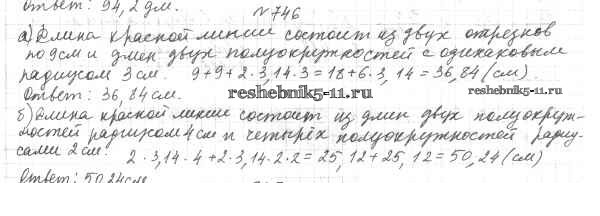 Ответ: 94,2 дм.
№ 746
а) Длина красной линии состоит из двух отрезков
по 9 см и длин двух полуокружностей с одинаковым
радиусом 3 см. 9+9+2·3,14·3=18+6·3,14=36,84(см).
Ответ: 36,84 см.
reshebnik5-11.ru reshebnik5-11.ru
б) Длина красной линии состоит из длин двух полуокруж-
ностей радиусом 4 см и четырёх полуокружностей радиу-
сами 2 см. 2·3,14·4+2·3,14·2·2=25,12+25,12=50,24(см)
Ответ: 50,24 см.